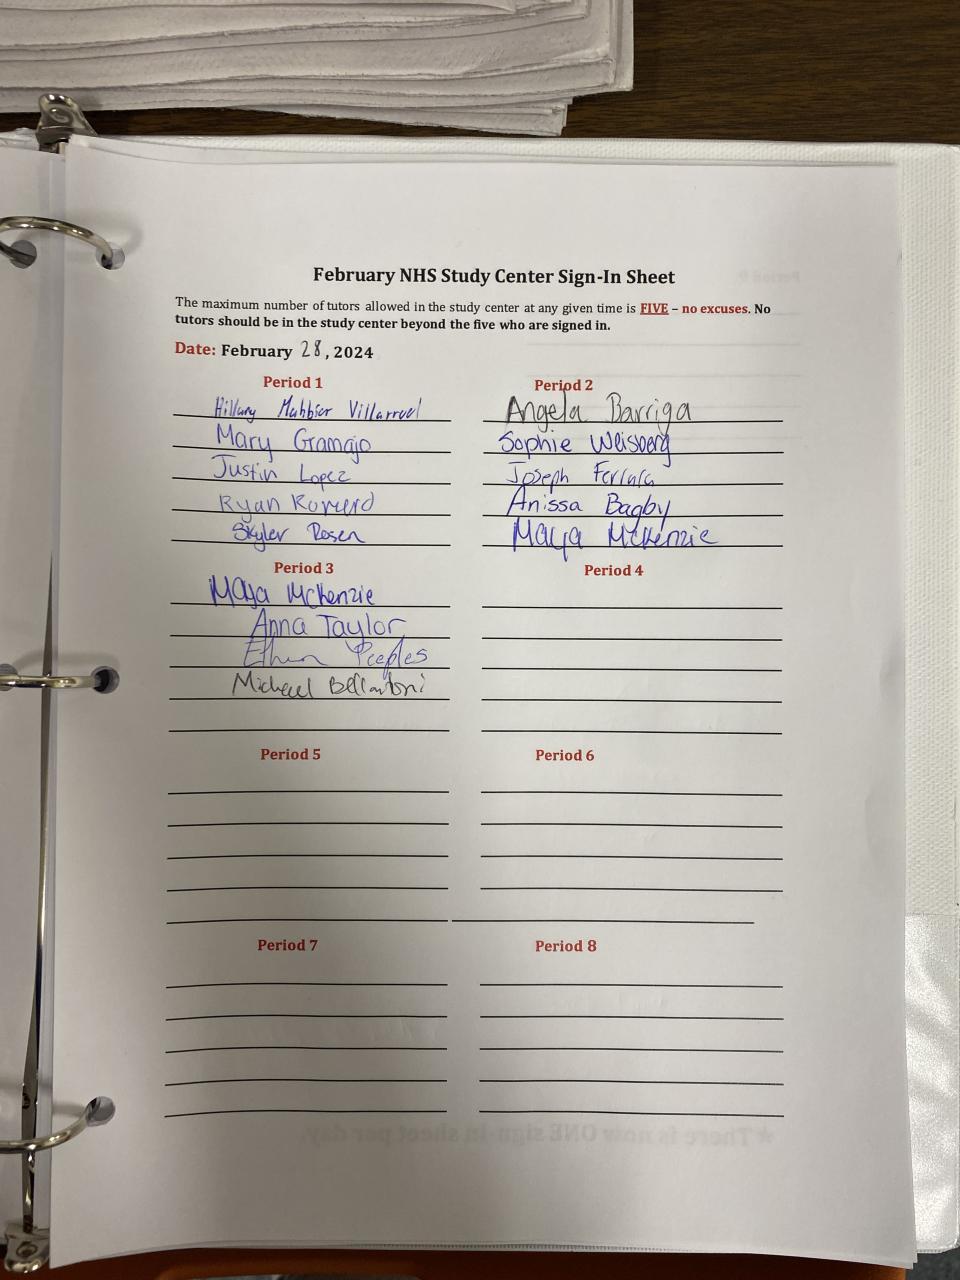 February NHS Study Center Sign-In Sheet
The maximum number of tutors allowed in the study center at any given time is FIVE – no excuses. No
tutors should be in the study center beyond the five who are signed in.
Date: February 28, 2024
Period 1
Hillary Mahbier Villarruel
Mary Gramajo
Justin Lopez
Ryan Romero
Skyler Rosen
Period 2
Angela Barriga
Sophie Weisberg
Joseph Ferrara
Anissa Bagby
Maya McKenzie
Period 3
Maya McKenzie
Anna Taylor
Ethan Peeples
Michael Bellantoni
Period 4
Period 5
Period 6
Period 7
Period 8
Period 9
★There is now ONE sign-in sheet per day.